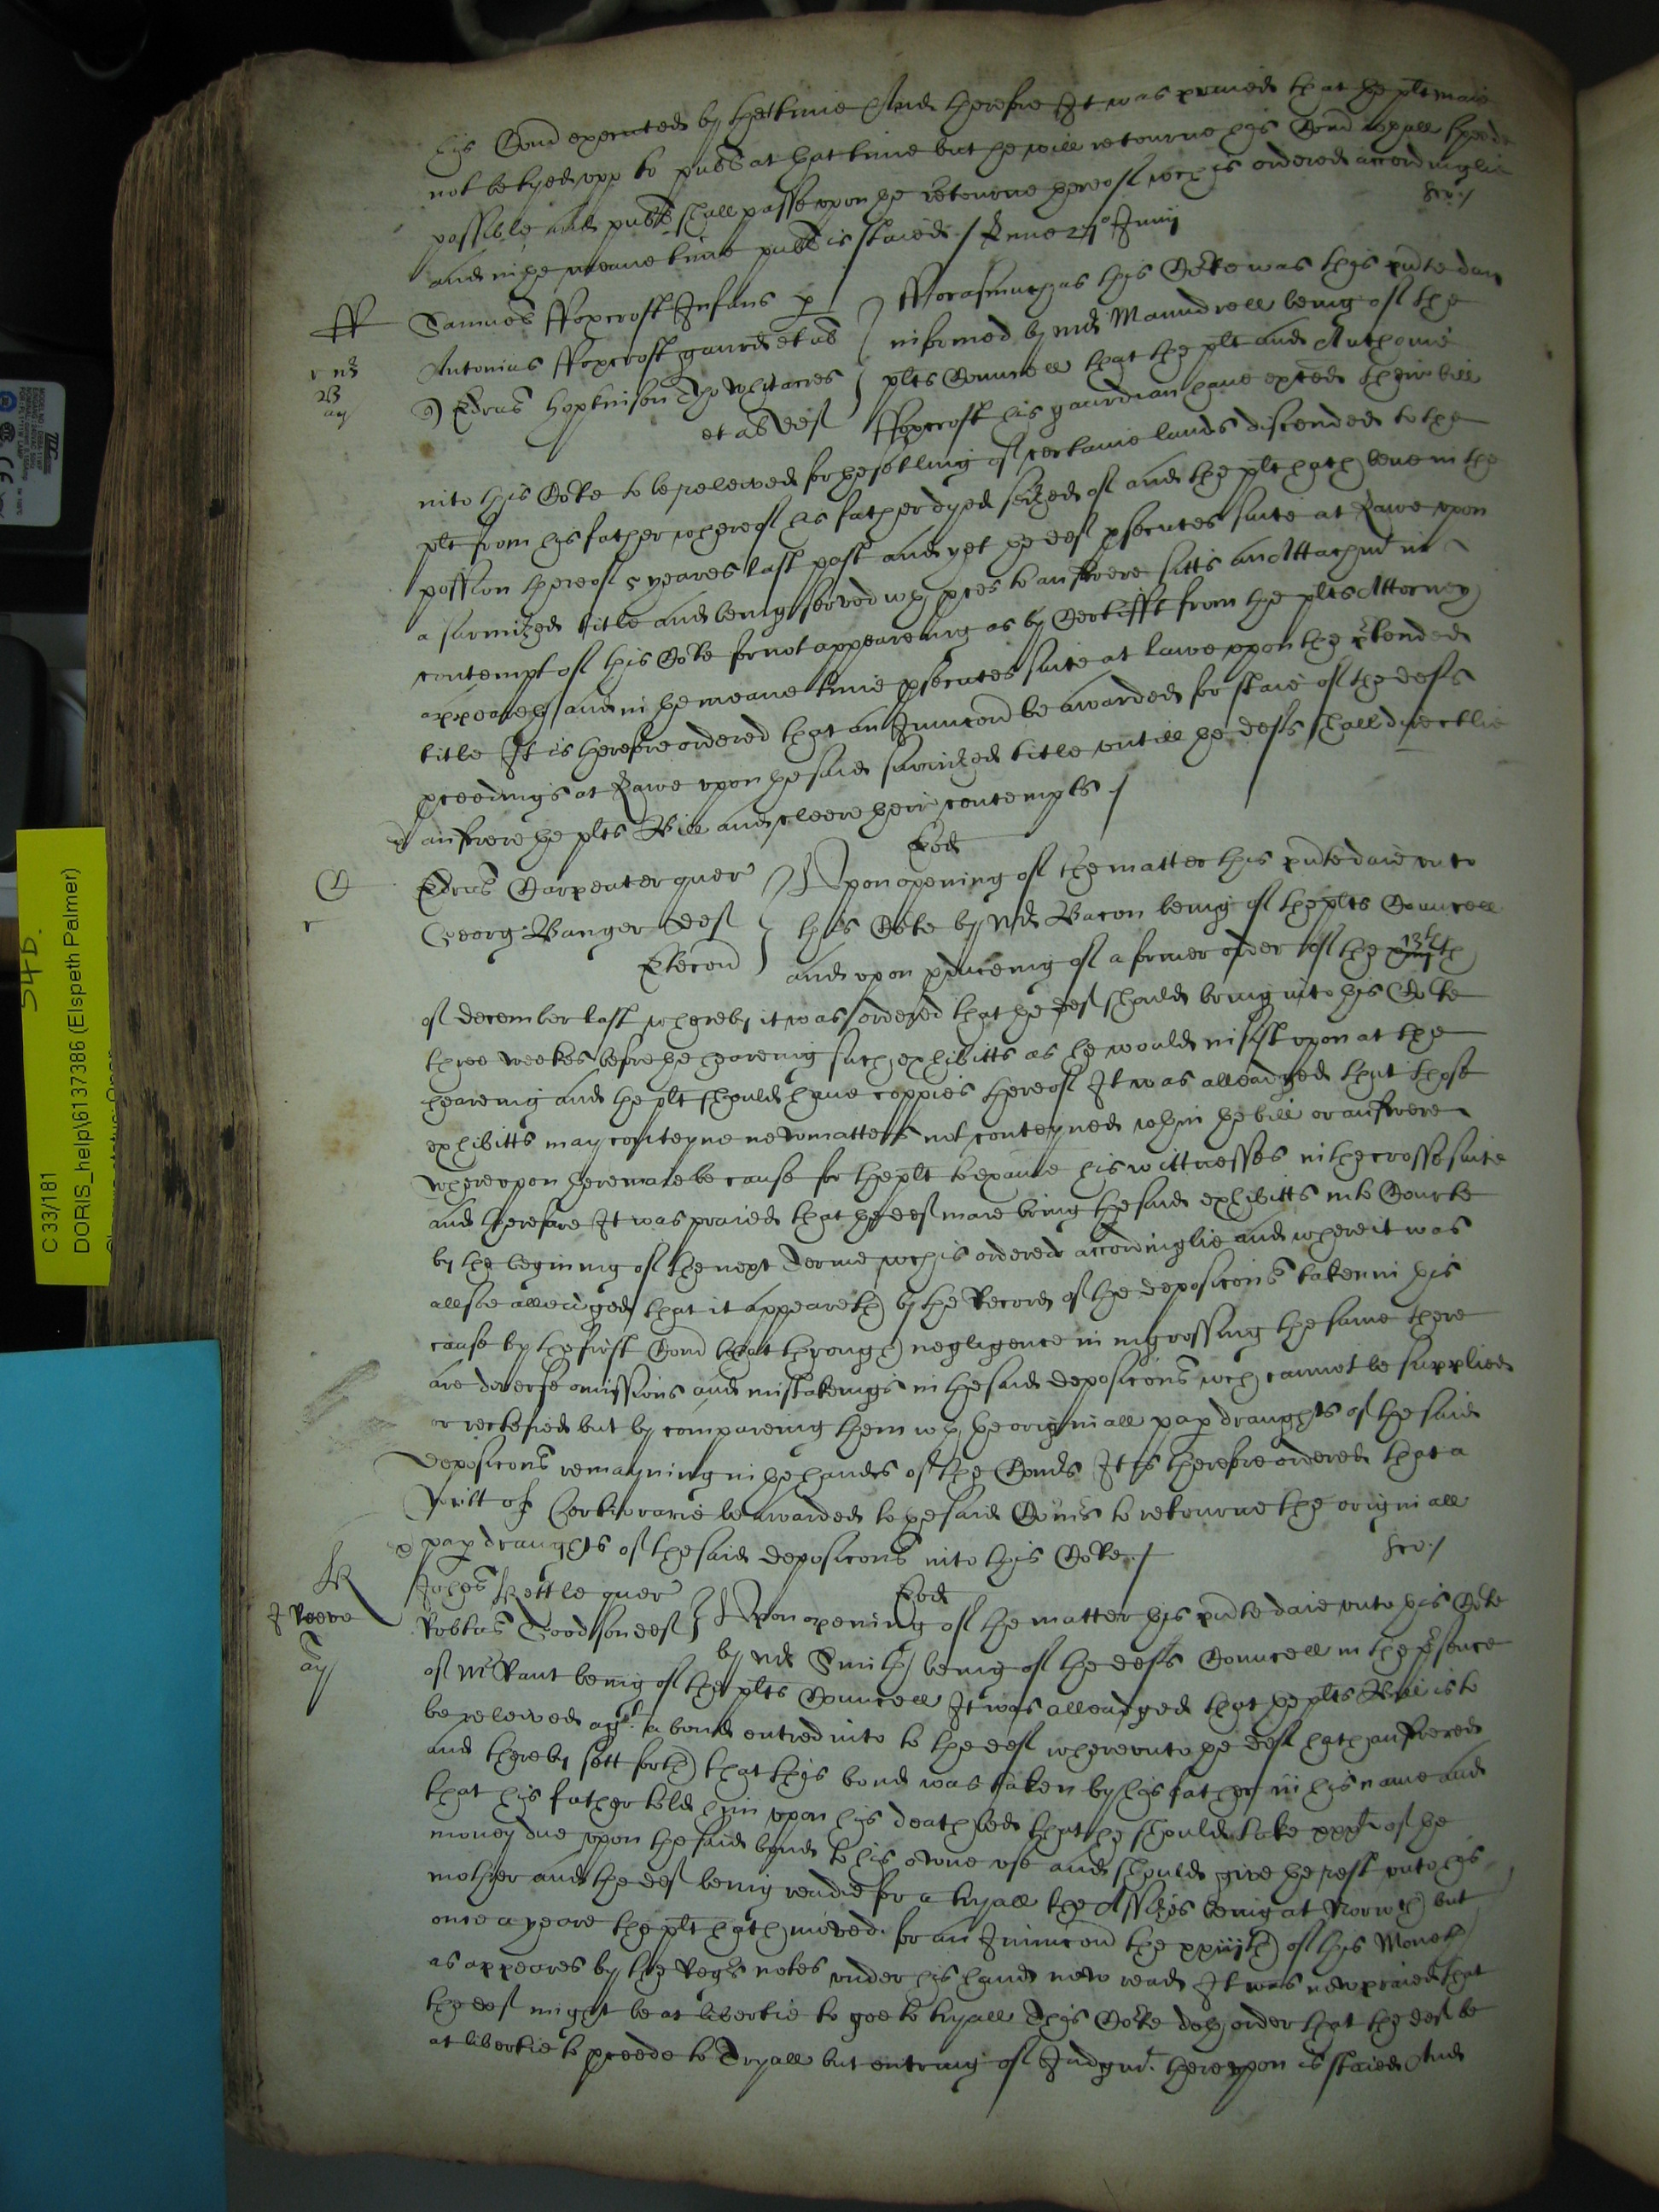 his Com̃ executed by that time And therefore It was praied that the plt maie
not be tyed upp to pubs at that time but he will retourne his Com̃ wth all speede
possible and pubs shall passe upon the retourne thereof wch is ordered accordinglie
and in the meane time pubs is staied / June 27o Junij
Samuel ffoxcroft Infans p
Antonius ffoxcroft gaurd et al
Edrus Hopkinson Tho Whitacres
et al def
fforasmuch as this Co:te was this pnte day
informed by mr Maundrell being of the
plts Councell that the plt and Anthonie
ffoxcroft his gaurdian have exhited their bill
into this Co:te to be releived for the setling of certaine lands discended to the
plt from his father whereof his father dyed seized of and the plt hath bene in the
possion thereof 5 yeares last past and yet the def psecutes suite at Lawe upon
a surmized title and being served wth pces to answere sitts an Attachmt in
contempt of this Co:te for not appeareing as by Certifft from the plts Attorney
appeareth and in the meane time psecutes suite at lawe upon the ptended
title It is therefore ordered that an Iniuncon be awarded for staie of the defts
pceedings at Lawe upon the said surmized title untill the defts shall directlie
answere the plts Bill and cleere their contempts /
Eod
Edrus Carpenter quer
Georg: Banger def
Upon opening of the matter this pnte daie unto
this Co:te by Mr Bacon being of the plts Councell
and upon pduceing of a former order of the 13th
of December last whereby it was ordered that the def should bring into this Co:te
three weekes before the heareing such exhibitts as he would insist upon at the
heareing and the plt should have coppies thereof It was alleadged that those
exhibitts may conteyne new matters not conteyned wthin the bill or answere
whereupon there maie be cause for the plt to exaime his wittnesses in the crosse suite
and therefore It was praied that the def maie bring the said exhibitts into Courte
by the begining of the next Terme wch is ordered accordinglie and where it was
allsoe alleadged that it appeareth by the Record of the deposicons taken in this
cause by the first Com̃ that through negligence in ingrossing the same there
are diverse omissions and mistakeings in the said deposicons wch cannot be supplied
or rectefied but by compareing them wth the originall pap draughts of the said
deposicons remayning in the hands of the Com̃rs It is therefore ordered that a
Writt of Certiorarie be awarded to the said Com̃rs to retourne the originall
pap draughts of the said deposicons into this Co:te /
J Reeve
Johes Kettle quer
Robtus Goodson def
Eod
Upon opening of the matter this pnte daie unto this Co:te
by mr Smith being of the defts Councell in the psence
of Mr Rant being of the plts Councell It was alleadged that the plts Bill is to
be releived agst a bond entred into to the def whereunto the def hath answered
and thereby sett forth that this bond was taken by his father in his name and
that his father told him upon his death bed that he should take xxli of the
money due upon the said bond to his owne use and should give the rest unto his
mother and the def being readie for a tryall the Assizes being at Norwch but
once a yeare the plt hath moved for an Iniuncon the xxiijth of this Moneth
as appeares by the Regrs notes under his hand now read It was now praied that
the def might be at libertie to goe to tryall This Co:te doth order that the def be
at libertie to pceede to Tryall but entring of Iudgmt thereupon is staied And
C 33/181
DORIS_help\6137386 (Elspeth Palmer)